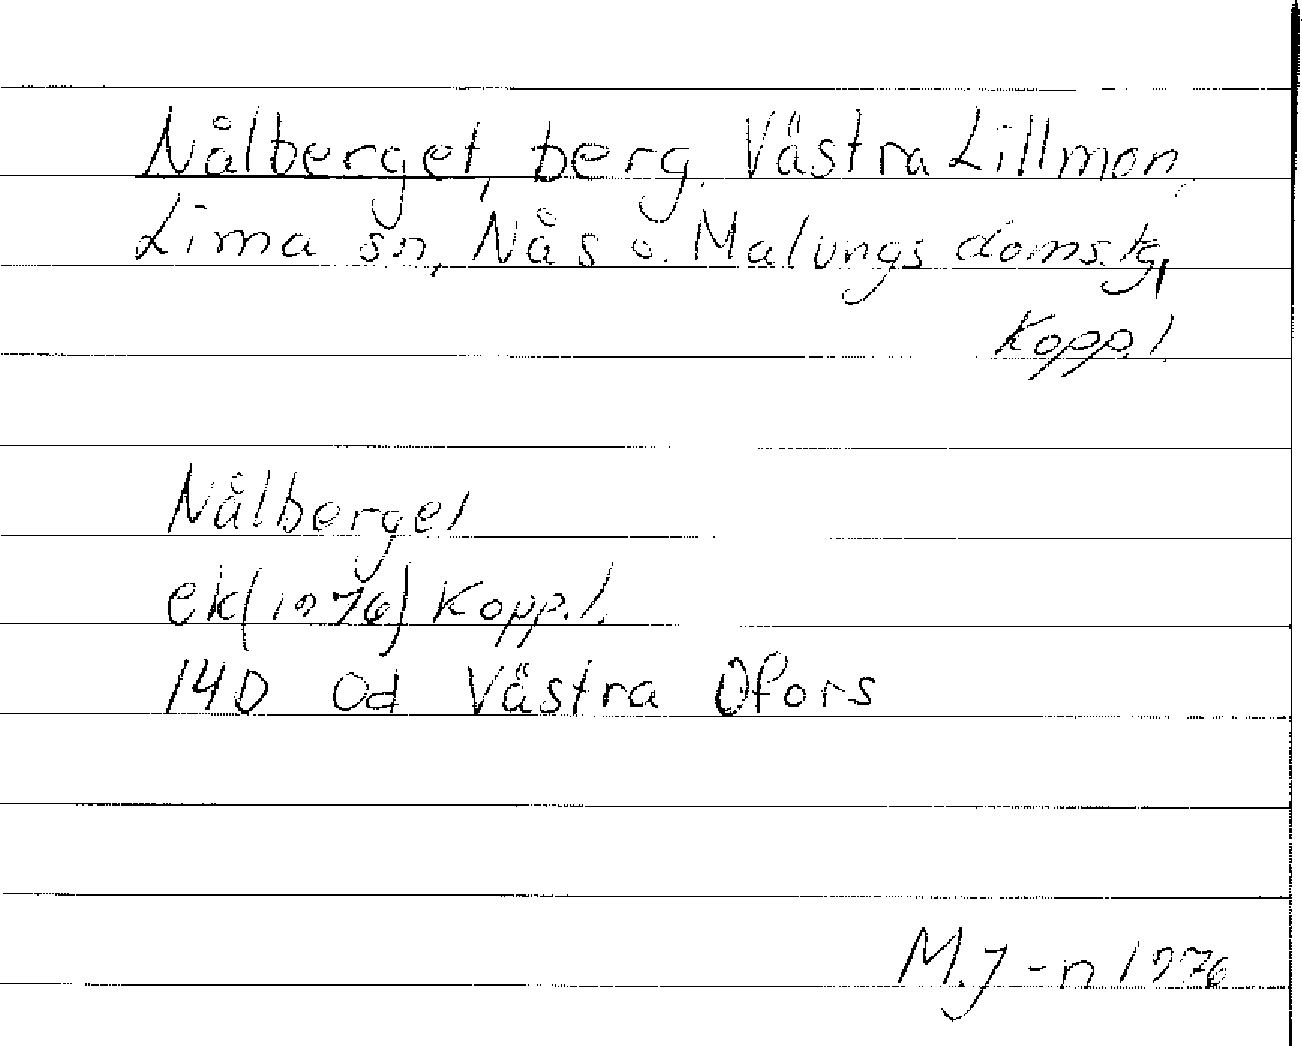 Nålberget, berg. Västra Lillmon,
Lima sn, Nås o. Malungs doms.tg,
Kopp.l.
Nålberget
ek(1976) Kopp.l.
14D Od Västra Ofors
M.J-n 1976